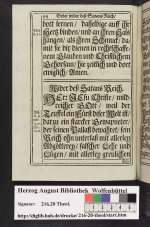 44 Gebet wider des Satans Reich.
Gott lernen / dasselbige auff ihr
Hertz binden / und an ihren Hals
hangen / als ihren Schmuck / da-
mit sie dir dienen in rechtschaffe-
nem Glauben und Christlichem
Gehorsam / hie zeitlich und dort
ewiglich / Amen.
Wider des Satans Reich.
HErr JEsu Christe /
reicher GOtt / weil der
Teuffel ein Fürst dieser Welt ist /
darzu ein starcker Gewapneter /
der seinen Pallast bewahret / sein
Reich ohn unterlaß mit allerley
Abgötterey / falscher Lehr und
Lügen / mit allerley greulichen
Herzog August Bibliothek Wolfenbüttel
Signatur: 216.20 Theol.
http://diglib.hab.de/drucke/216-20-theol/start.htm